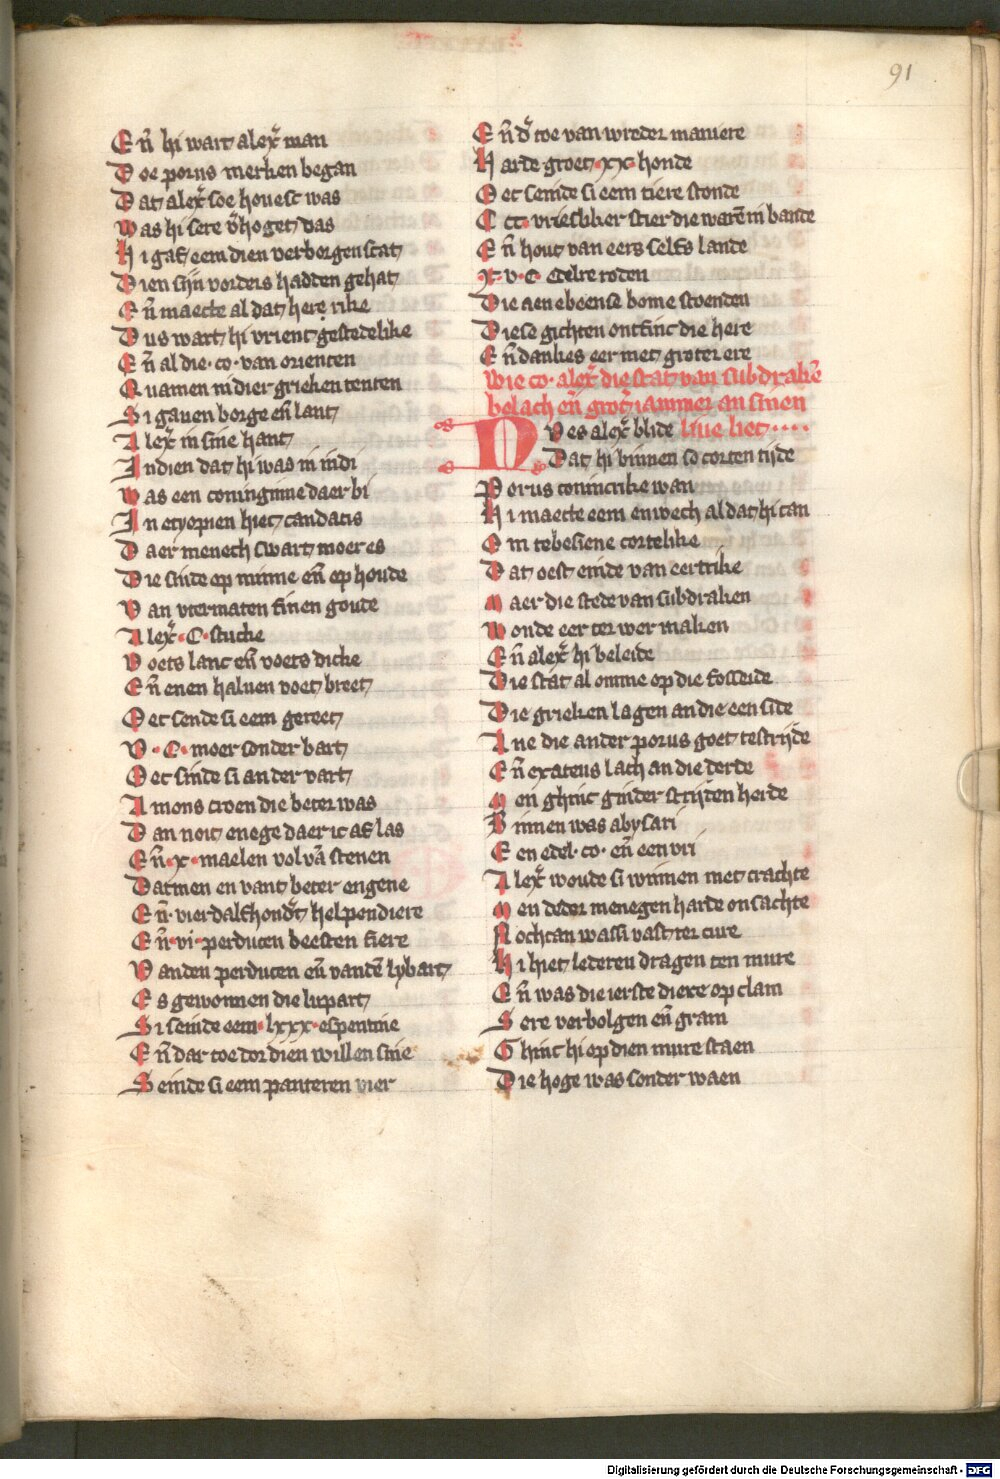 91
En̄ hi wart alex̄ man
Doe porus merken began
Dat alex̄ soe houesc was
Was hi sere v̄hoget das
Hi gaf eem dien verborgen scat
Dien sijn vorders hadden gehat
En̄ maecte al dat here rike
Dus wart hi vrient gestedelike
En̄ al die ·co· van orienten
Quamen in dier grieken tenten
Si gauen borge en̄ lant
Alex̄ in sine hant
Indien dat hi was in indi
Was een coninginne daer bi
In etyopien hiet candacis
Daer menech swart moer es
Die sinde op minne en̄ op houde
Van vtermaten finen goude
Alex̄ ·C· stucke
Voets lanc en̄ voets dicke
En̄ enen haluen voet breet
Oec sende si eem gereet
V·C· moer sonder bart
Oec sinde si ander vart
Amons croen die beter was
Dan noit enege daer ic af las
En̄ ·x· maelen vol vā stenen
Datmen en vant beter engene
En̄ vierdalfhondt helpendiere
En̄ ·vi· perducen beesten fiere
Vanden perducen en̄ vandē lybart
Es gewonnen die lupart
Si seinde eem ·lxxx· espentine
En̄ dar toe dor dien willen sine
Seinde si eem panteren vier
En̄ d toe van wreder maniere
Harde groet ·xx· honde
Oec seinde si eem tiere stonde
CCC vriesliker stier die warē in bande
En̄ hout van eers selfs lande
X·v·C· edelre roden
Die aen ebeense bome stoenden
Diese gichten ontfinc die here
En̄ dankes eer met groter ere
Wie co· alex̄ die stat van subdrakē
belach en̄ grot iammer an sinen
liue liet ····
Nv es alex̄ blide
Dat hi binnen so corten tijde
Porus conincrike wan
Hi maecte eem enwech al dat hi can
Om te besiene cortelike
Dat oest einde van eertrike
Maer die stede van subdraken
Wonde eer ter wer maken
En̄ alex̄ hi beleide
Die stat al omme op die fosseide
Die grieken lagen an die een side
Ane die ander porus goet te stride
En̄ exateus lach an die derde
Men ghinc ginder striten herde
Binnen was abysari
Een edel ·co· en̄ een vri
Alex̄ woude si winnen met crachte
Men deder menegen harde onsachte
Nochtan wassi vast ter cure
Hi hiet lederen dragen ten mure
En̄ was die ierste diere op clam
Sere verbolgen en̄ gram
Ghinc hi op dien mure staen
Die hoge was sonder waen
Digitalisierung gefördert durch die Deutsche Forschungsgemeinschaft - DFG